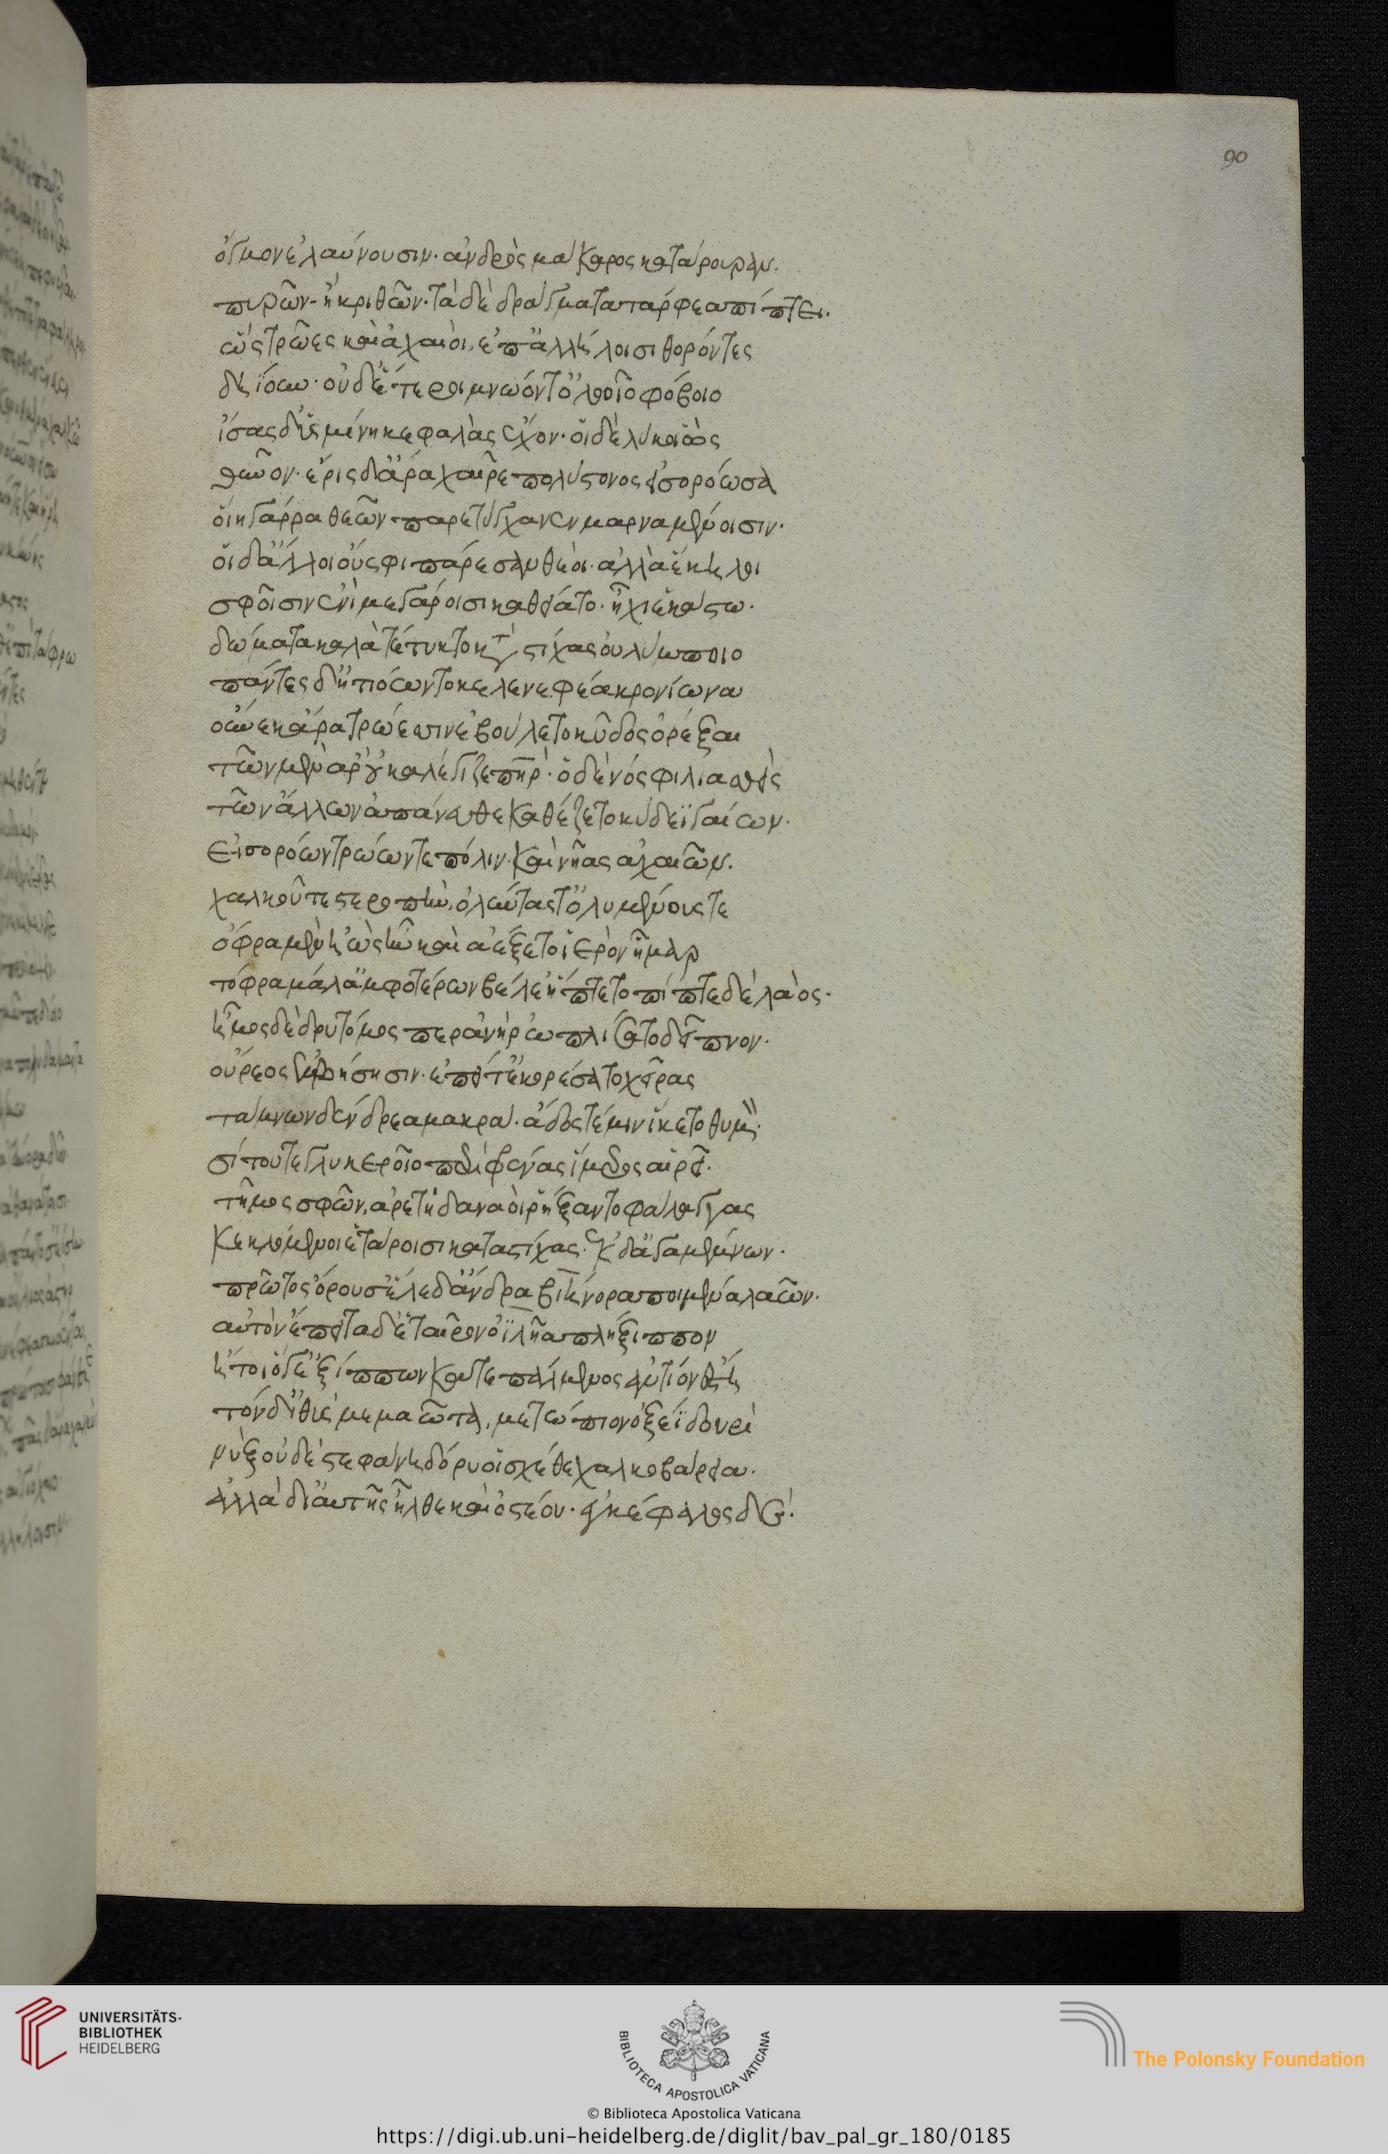 90
ὄγμον ἐλαύνουσιν· ἀνδρὸς μάκαρος κατάρουραν.
πυρῶν ἢ κριθῶν· τὰ δὲ δράγματα ταρφέα πίπτει.
ὣς τρῶες καὶ ἀχαιοὶ, ἐπ ἀλλήλοισι θορόντες
δήϊόων· οὐδ ἕτεροι μνώοντ ὀλοοῖο φόβοιο
ἴσας δ ὑσμίνη κεφαλὰς ἔχον· οἱ δὲ λύκοι ὣς
θῦνον· ἔρις δ ἄρα χαῖρε πολύστονος εἰσορόωσα
οἴη γάρ ῥα θεῶν παρετύγχανεν μαρναμένοισιν·
οἱ δ ἄλλοι οὔ σφι πάρεσαν θεοὶ· ἀλλὰ ἕκηλοι
σφοῖσιν ἐνὶ μεγάροισι καθείατο· ἧχι ἑκάστω·
δώματα καλὰ τέτυκτο κατὰ πτύχας οὐλύμποιο
πάντες δ ἠτιόωντο κελενεφέα κρονίωνα
οὕνεκ ἄρα τρώεσσιν ἐβούλετο κῦδος ὀρέξαι
τῶν μὲν ἄρ οὐκ ἀλέγιζε πατὴρ· ὁ δὲ νόσφι λιασθεὶς
τῶν ἄλλων ἀπάνευθε καθέζετο κύδεϊ γαίων·
εἰσορόων τρώων τε πόλιν· καὶ νῆας ἀχαιῶν.
χαλκοῦ τε στεροπὴν, ὀλλύντας τ ὀλυμένους τε
ὄφρα μὲν ἠὼς ἦν καὶ ἀέξετο ἱερὸν ἦμαρ
τόφρα μάλ ἀμφοτέρων βέλε ἥπτετο πίπτε δὲ λαὸς·
ἦμος δὲ δρυτόμος περ ἀνὴρ ὡπλίσσατο δεῖπνον·
οὔρεος ἐν βήσησιν· ἐπεί τ ἐκορέσατο χεῖρας
τάμνων δένδρεα μακρά· ἅδος τέ μιν ἵκετο θυμὸν·
σίτου τε γλυκεροῖο περὶ φρένας ἵμερος αἱρεῖ·
τῆμος σφῶν, ἀρετῇ δαναοὶ ῥήξαντο φάλαγγας
κεκλόμενοι ἑτάροισι κατὰ στίχας· ἐν δ ἀγαμέμνων·
πρῶτος ὄρουσ ἕλε δ ἄνδρα βιήνορα ποιμένα λαῶν·
αὐτὸν ἔπειτα δ ἑταῖρον ὀϊλῆα πλήξιππον
ἤτοι ὅγ ἐξ ἵππων κατεπάλμενος ἀντίος ἔστη
τὸν δ ἰθὺς μεμαῶτα, μετώπιον ὀξέϊ δουρὶ
νύξ οὐδὲ στεφάνη δόρυ οἱ σχέθε χαλκοβάρεια·
ἀλλὰ δι αὐτῆς ἦλθε καὶ ὀστέου· ἐγκέφαλος δὲ·
UNIVERSITÄTS-
BIBLIOTHEK
HEIDELBERG
BIBLIOTECA APOSTOLICA VATICANA
The Polonsky Foundation
© Biblioteca Apostolica Vaticana
https://digi.ub.uni-heidelberg.de/diglit/bav_pal_gr_180/0185